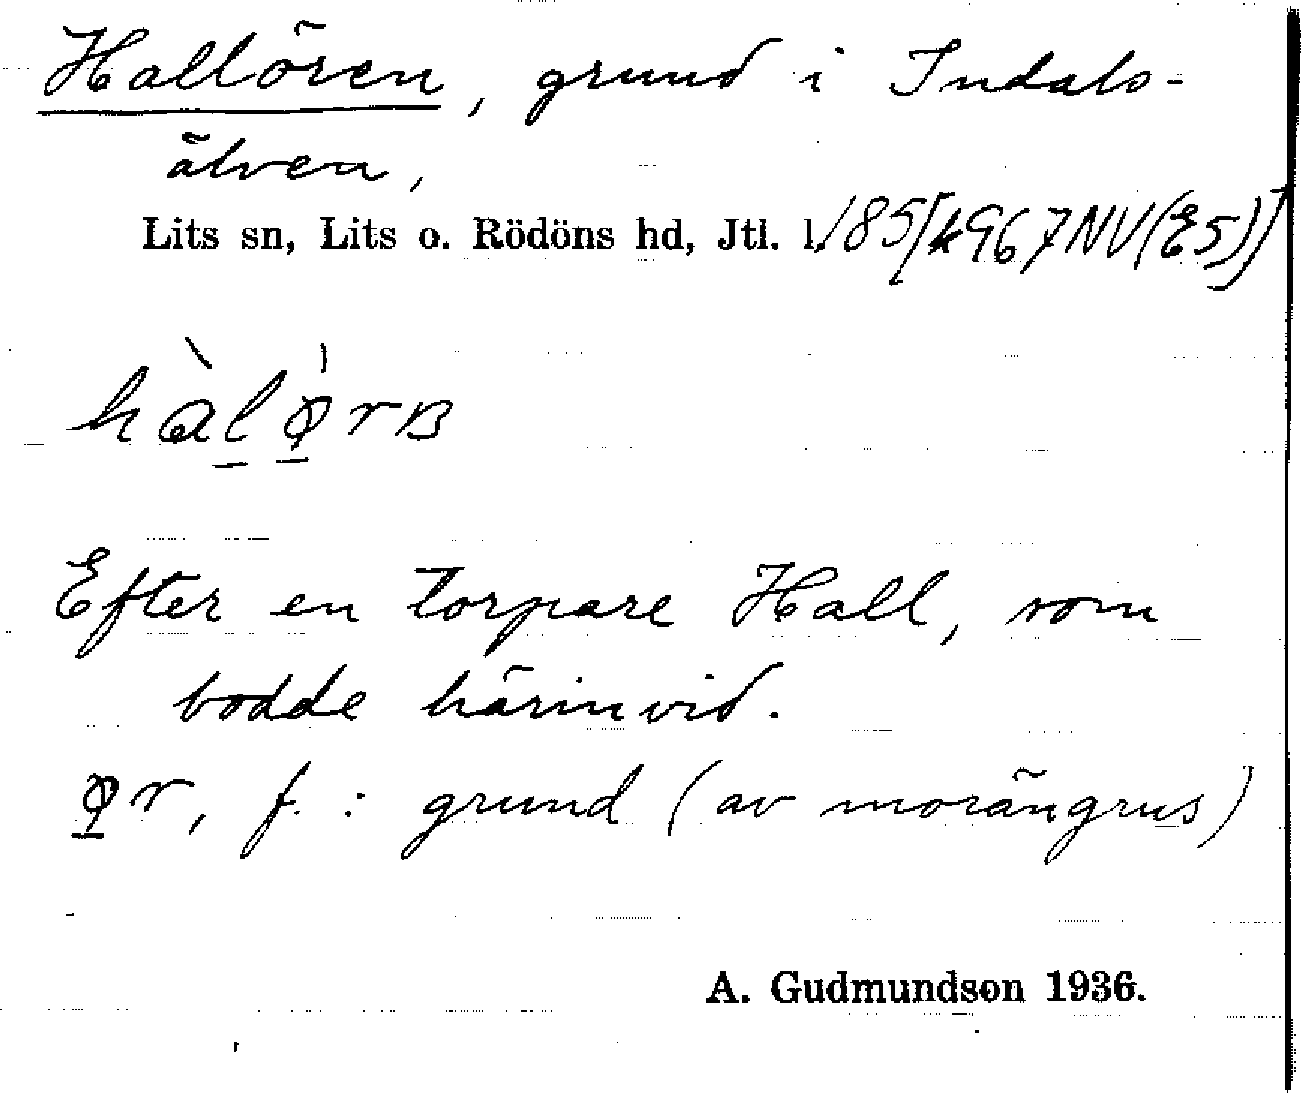 Hallören, grund i Indals-
älven,
Lits sn, Lits o. Rödöns hd, Jtl. l. 185[k967NV(E5)]
Efter en torpare Hall, som
bodde härinvid.
ø̱r, f. : grund (av morängrus)
A. Gudmundson 1936.